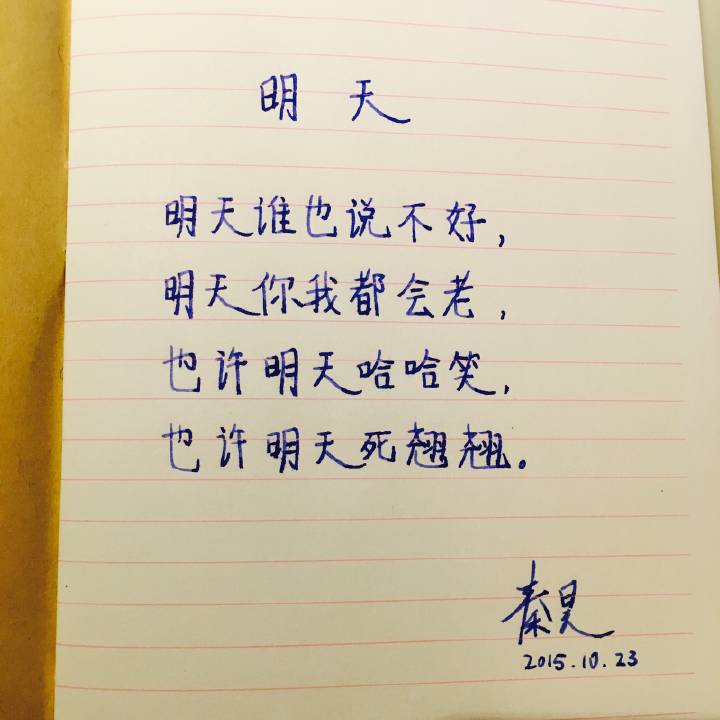 明天
明天谁也说不好,
明天你我都会老,
也许明天哈哈笑,
也许明天死翘翘。
秦昊
2015.10.23